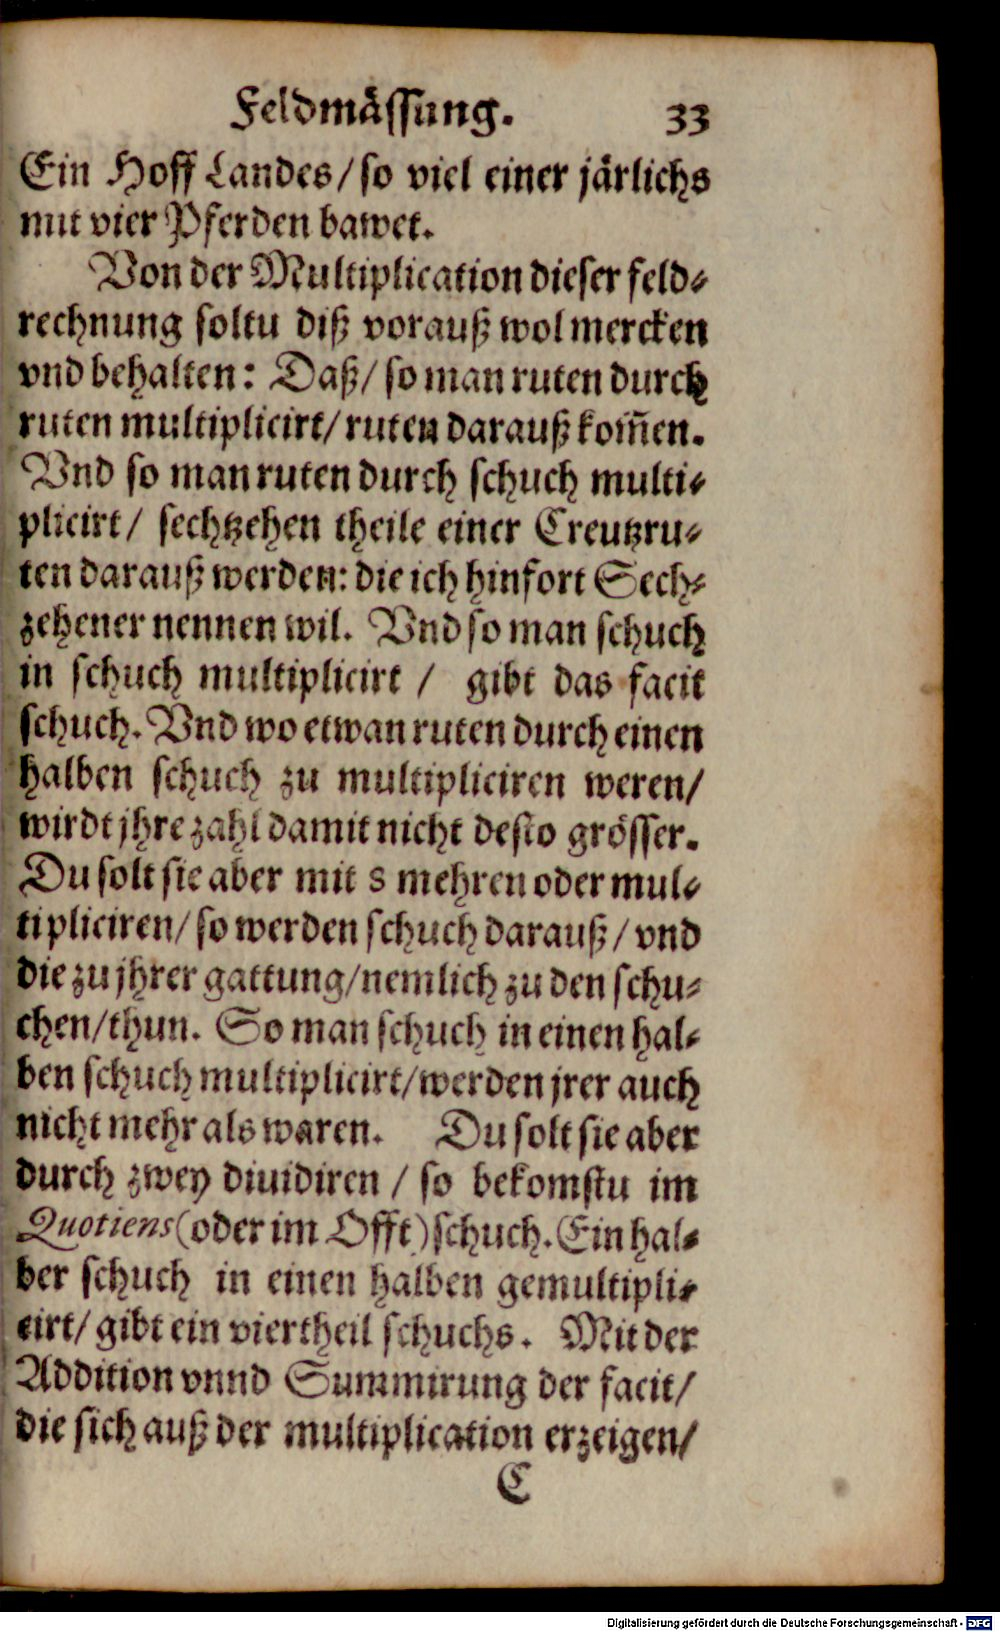 Feldmässung. 33
Ein Hoff Landes/ so viel einer järlichs
mit vier Pferden bawet.
Von der Multiplication dieser feld-
rechnung soltu diß vorauß wol mercken
vnd behalten: Daß/ so man ruten durch
ruten multiplicirt/ ruten darauß kom̃en.
Vnd so man ruten durch schuch multi-
plicirt/ sechtzehen theile einer Creutzru-
ten darauß werden: die ich hinfort Sech-
zehener nennen wil. Vnd so man schuch
in schuch multiplicirt / gibt das facit
schuch. Vnd wo etwan ruten durch einen
halben schuch zu multipliciren weren/
wirdt jhre zahl damit nicht desto grösser.
Du solt sie aber mit 8 mehren oder mul-
tipliciren/ so werden schuch darauß/ vnd
die zu jhrer gattung/ nemlich zu den schu-
chen/ thun. So man schuch in einen hal-
ben schuch multiplicirt/ werden jrer auch
nicht mehr als waren. Du solt sie aber
durch zwey diuidiren / so bekomstu im
Quotiens (oder im Offt) schuch. Ein hal-
ber schuch in einen halben gemultipli-
cirt/ gibt ein viertheil schuchs. Mit der
Addition vnnd Summirung der facit/
die sich auß der multiplication erzeigen/
C
Digitalisierung gefördert durch die Deutsche Forschungsgemeinschaft - DFG